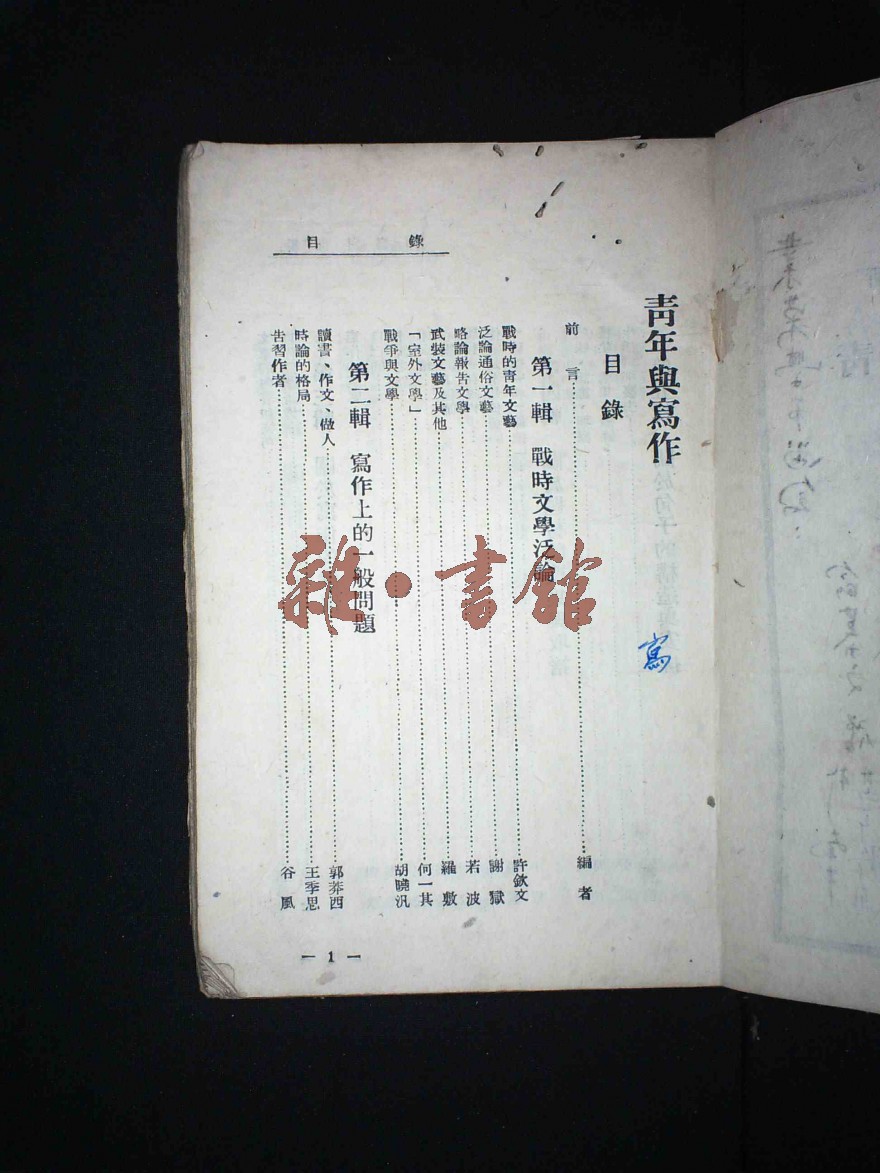 目錄
青年與寫作
目錄
前言…………編者
第一輯 戰時文學泛論
戰時的青年文藝…………許欽文
泛論通俗文藝…………謝獄
略論報告文學…………若波
武裝文藝及其他…………羅敷
「室外文學」…………何一其
戰爭與文學…………胡曉汎
第二輯 寫作上的一般問題
讀書、作文、做人…………郭莽西
時論的格局…………王季思
告習作者…………谷風
— 1 —
寫
雜·書館